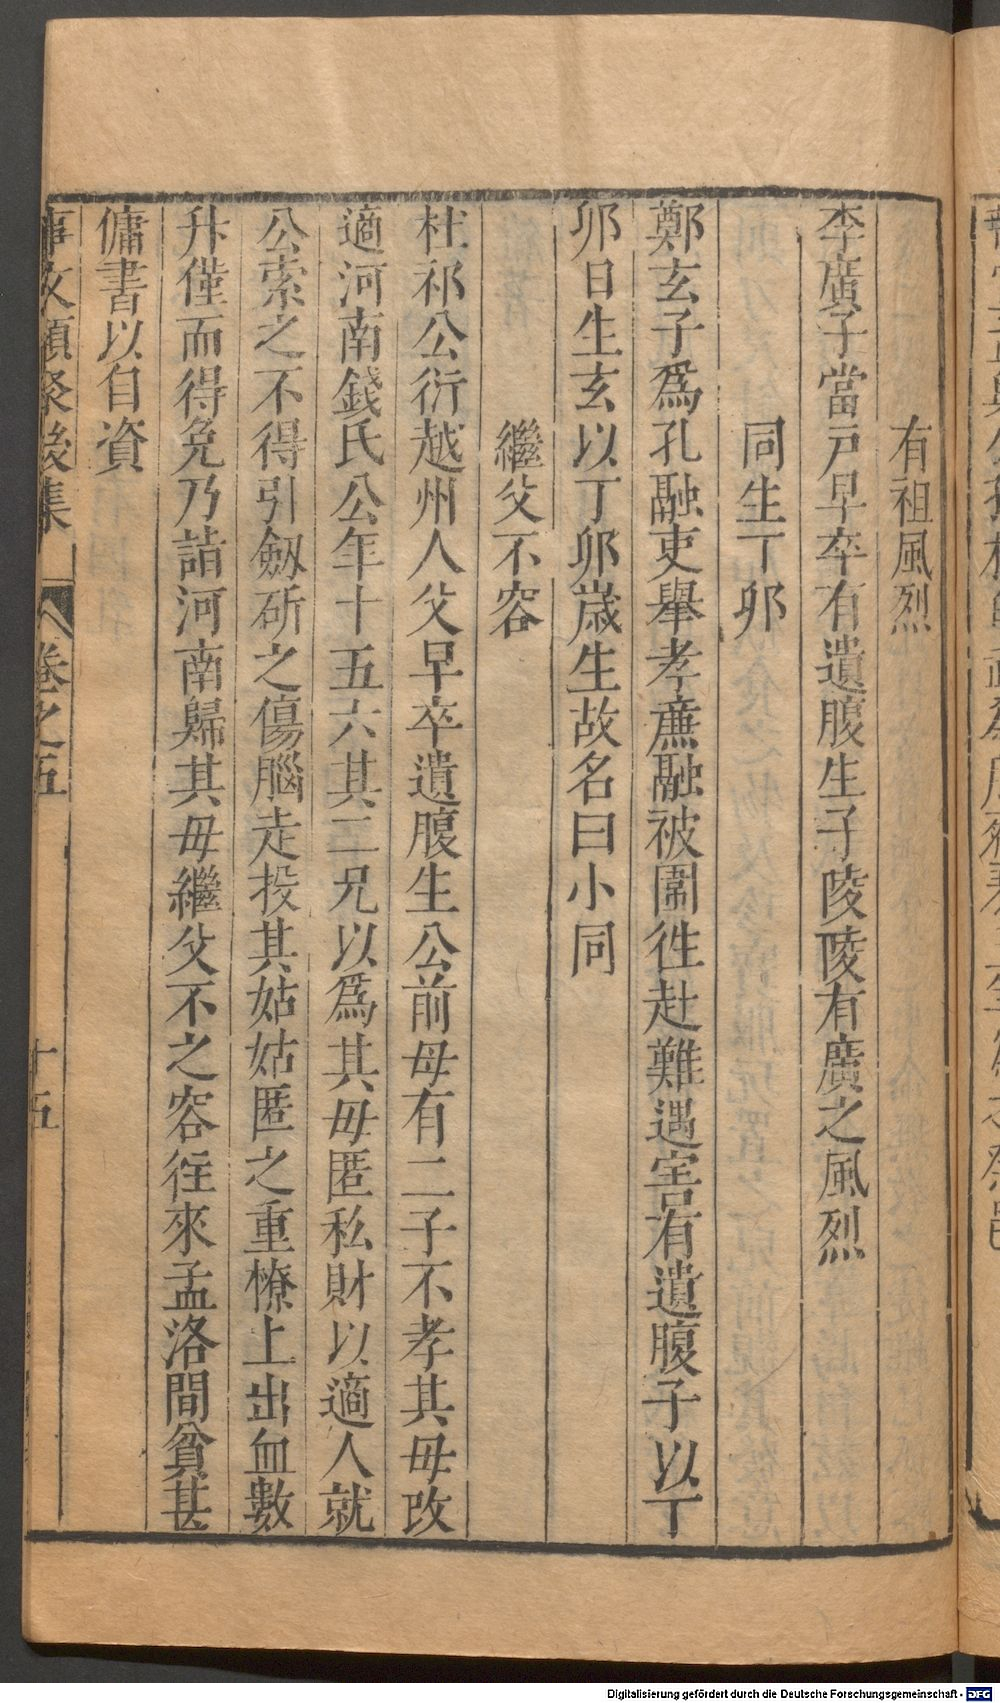 有祖風烈
李廣子當戸早卒有遺腹生子陵陵有廣之風烈
同生丁卯
鄭玄子爲孔融吏舉孝廉融被圍徃赴難遇害有遺腹子以丁
卯日生玄以丁卯歲生故名曰小同
繼父不容
杜祁公衍越州人父早卒遺腹生公前母有二子不孝其母改
適河南錢氏公年十五六其二兄以爲其母匿私財以適人就
公索之不得引劔斫之傷腦走投其姑姑匿之重橑上出血數
升僅而得免乃詣河南歸其母繼父不之容往來孟洛間貧甚
傭書以自資
事文類聚後集 卷之五 十五
Digitalisierung gefördert durch die Deutsche Forschungsgemeinschaft - DFG